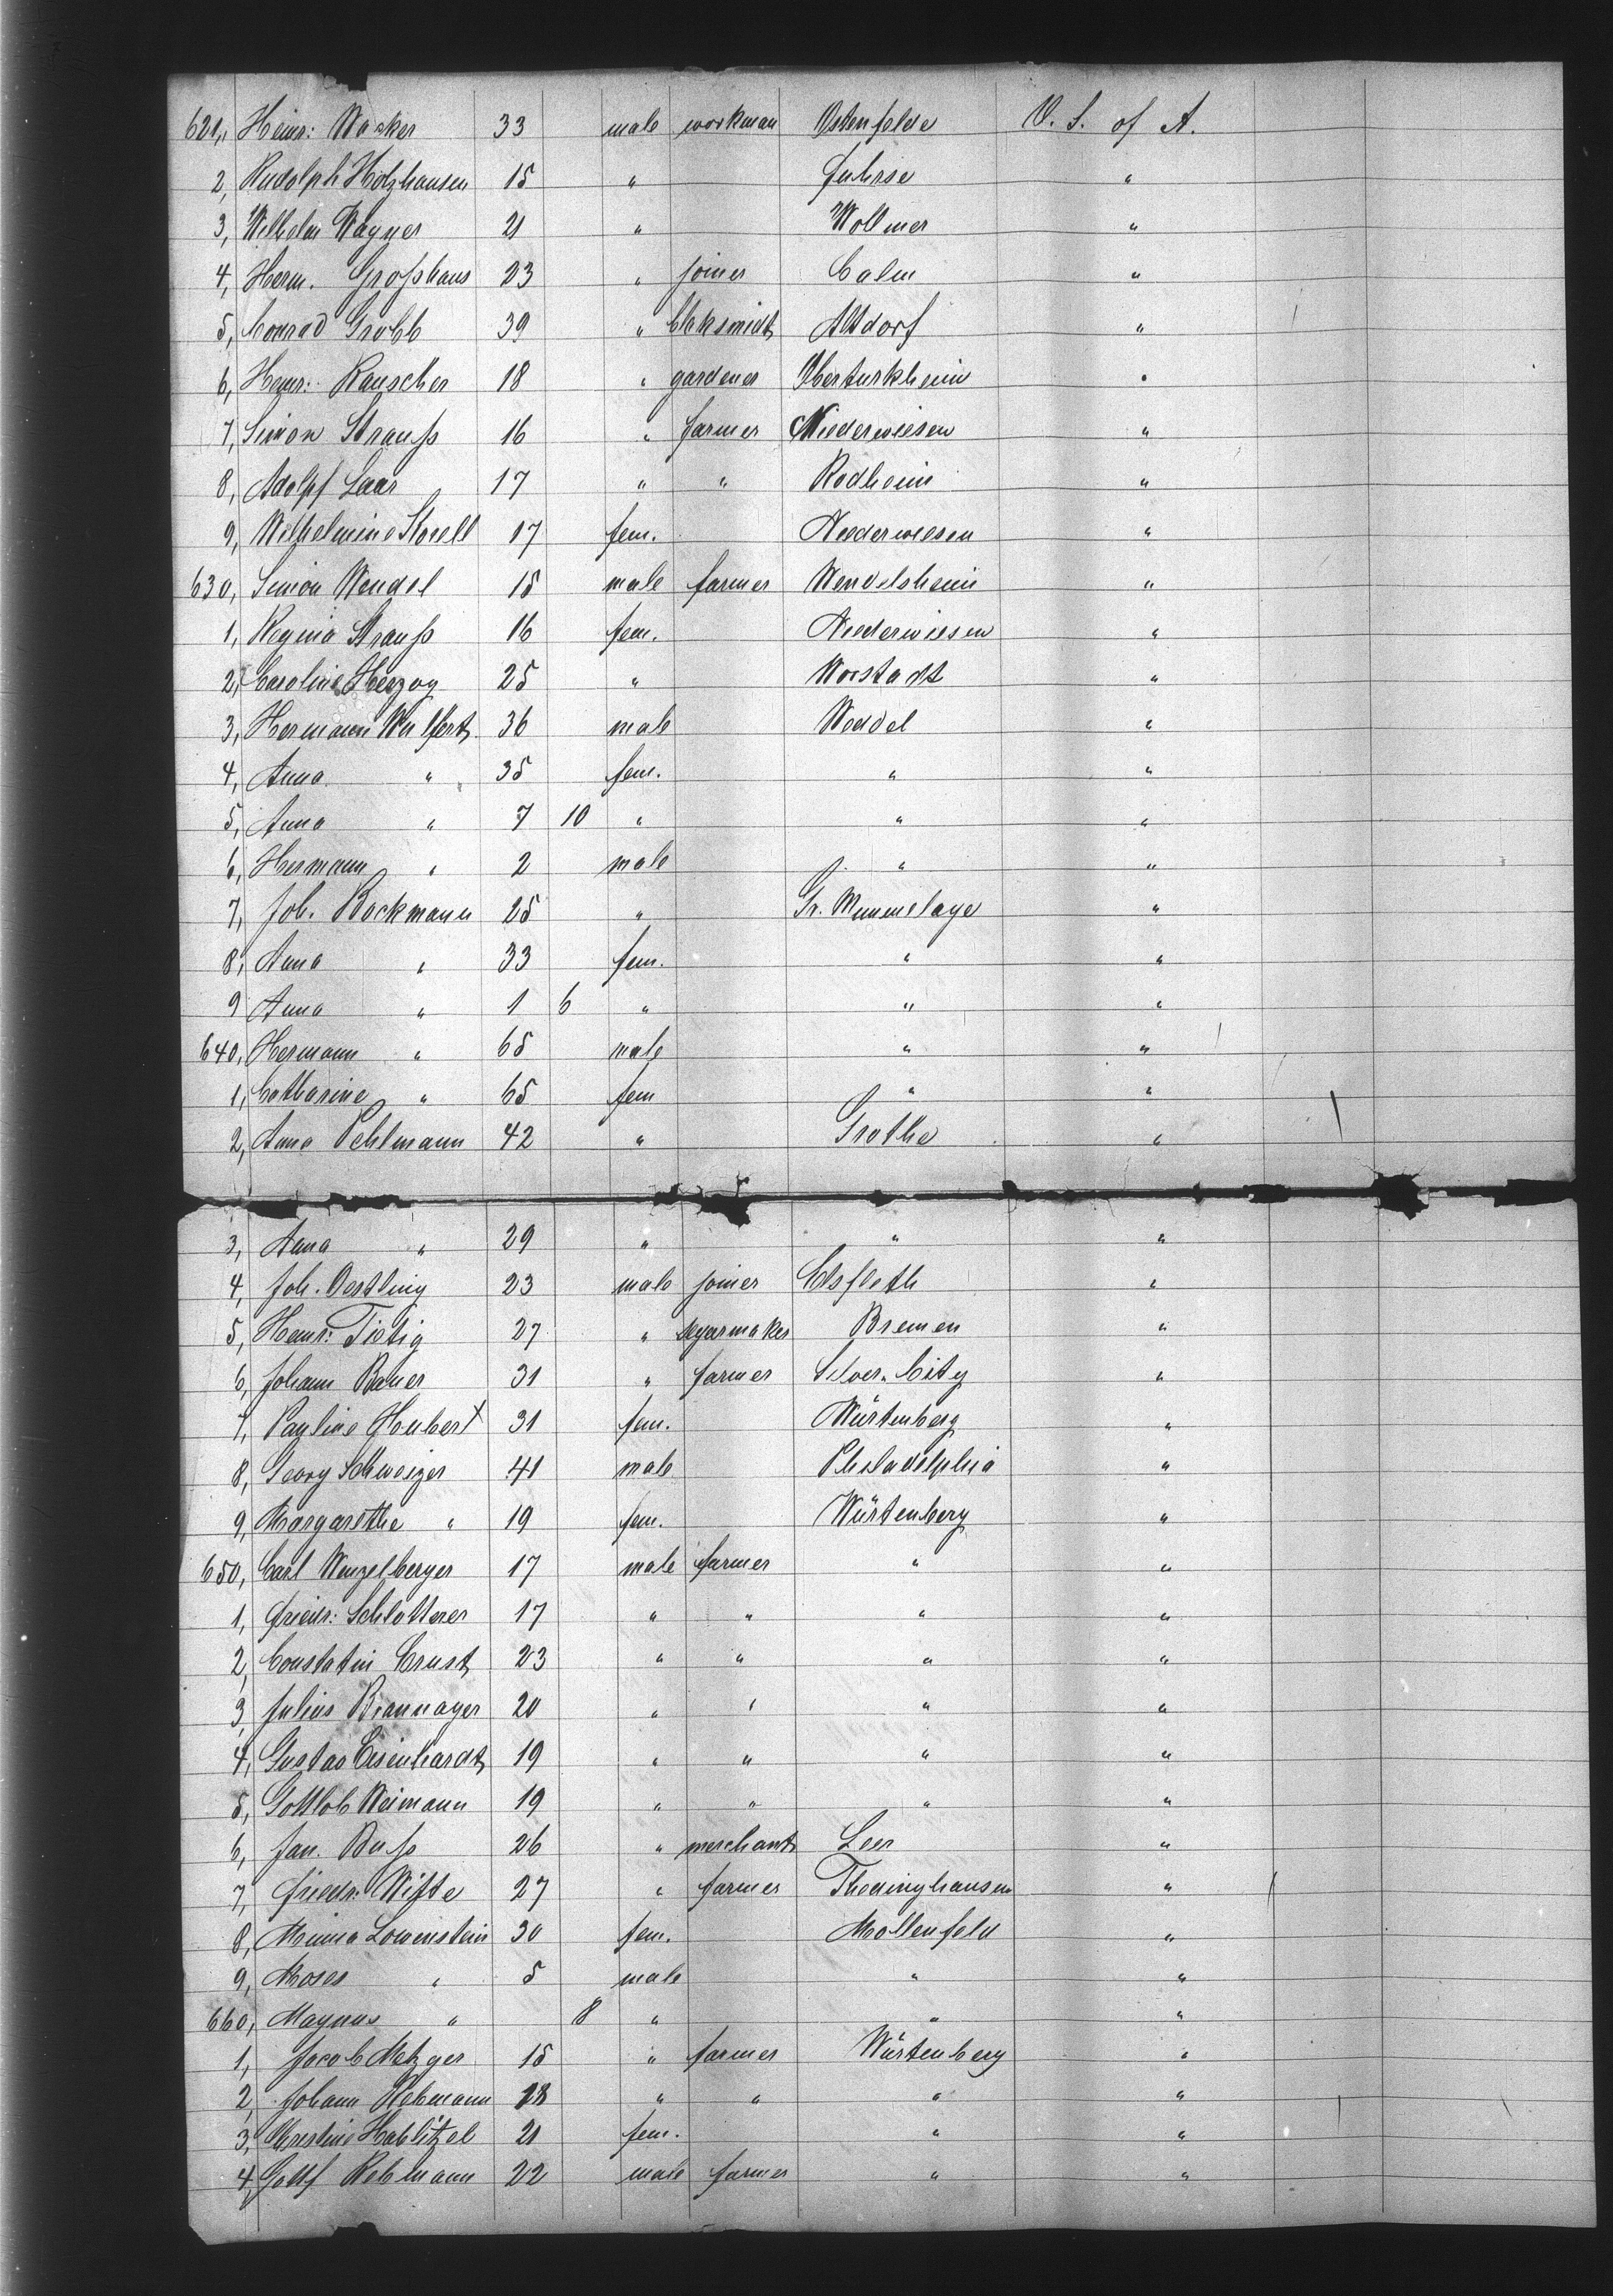 621, Heinr: Wacker 33 male workman Ostenfelde U. S. of A.
2, Rudolph Holzhausen 15 " Fuhrse "
3, Wilhelm Wagner 21 " Wollmer "
4, Herm. Großhaus 23 " joiner Calm "
5, Conrad Grobb 39 " blcksmidt Altdorf "
6, Heinr: Rauscher 18 " gardener Oberturkheim "
7, Simon Strauß 16 " farmer Niederwiesen "
8, Adolf Laar 17 " " Rodheim "
9, Wilhelmine Korell 17 fem. Niederwiesen "
630, Simon Wendel 15 male farmer Wendelsheim "
1, Regina Strauß 16 fem. Niederwiesen "
2, Caroline Herzog 25 " Worstadt "
3, Hermann Wulfert 36 male Weddel "
4, Anna " 35 fem. " "
5, Anna " 7 10 " " "
6, Hermann " 2 male " "
7, Joh. Bockmann 25 " Gr. Mimmelage "
8, Anna " 33 fem. " "
9 Anna " 1 6 " " "
640, Hermann " 65 male " "
1, Catharine " 65 fem " "
2, Anna Pehlmann 42 " Grothe "
3, Anna " 29 " " "
4, Joh. Oestling 23 male joiner Elsfleth "
5, Heinr: Tietig 27 " segarmaker Bremen "
6, Johann Bauer 31 " farmer Silver City "
7, Pauline Hubert x 31 fem. Würtemberg "
8, Georg Schweizer 41 male Philadelphia "
9, Margarethe " 19 fem. Würtenberg "
650, Carl Wenzelberger 17 male farmer " "
1, Friedr: Schlotterer 17 " " " "
2, Constatin Ernst 23 " " " "
3, Julius Braunager 20 " " " "
4, Gustav Eisenhardt 19 " " " "
5, Gottlob Weimann 19 " " " "
6, Jan. Buß 26 " merchant Leer "
7, Friedr: Witte 27 " farmer Thedinghausen "
8, Minna Lowenstein 30 fem. Mollenfeld "
9, Moses " 5 male " "
660, Magnus " 8 " " "
1, Jacob Metzger 15 " farmer Würtenberg "
2, Johann Rebmann 18 " " " "
3, Christine Hablitzel 21 fem. " "
4, Gottf Rebmann 22 male farmer " "